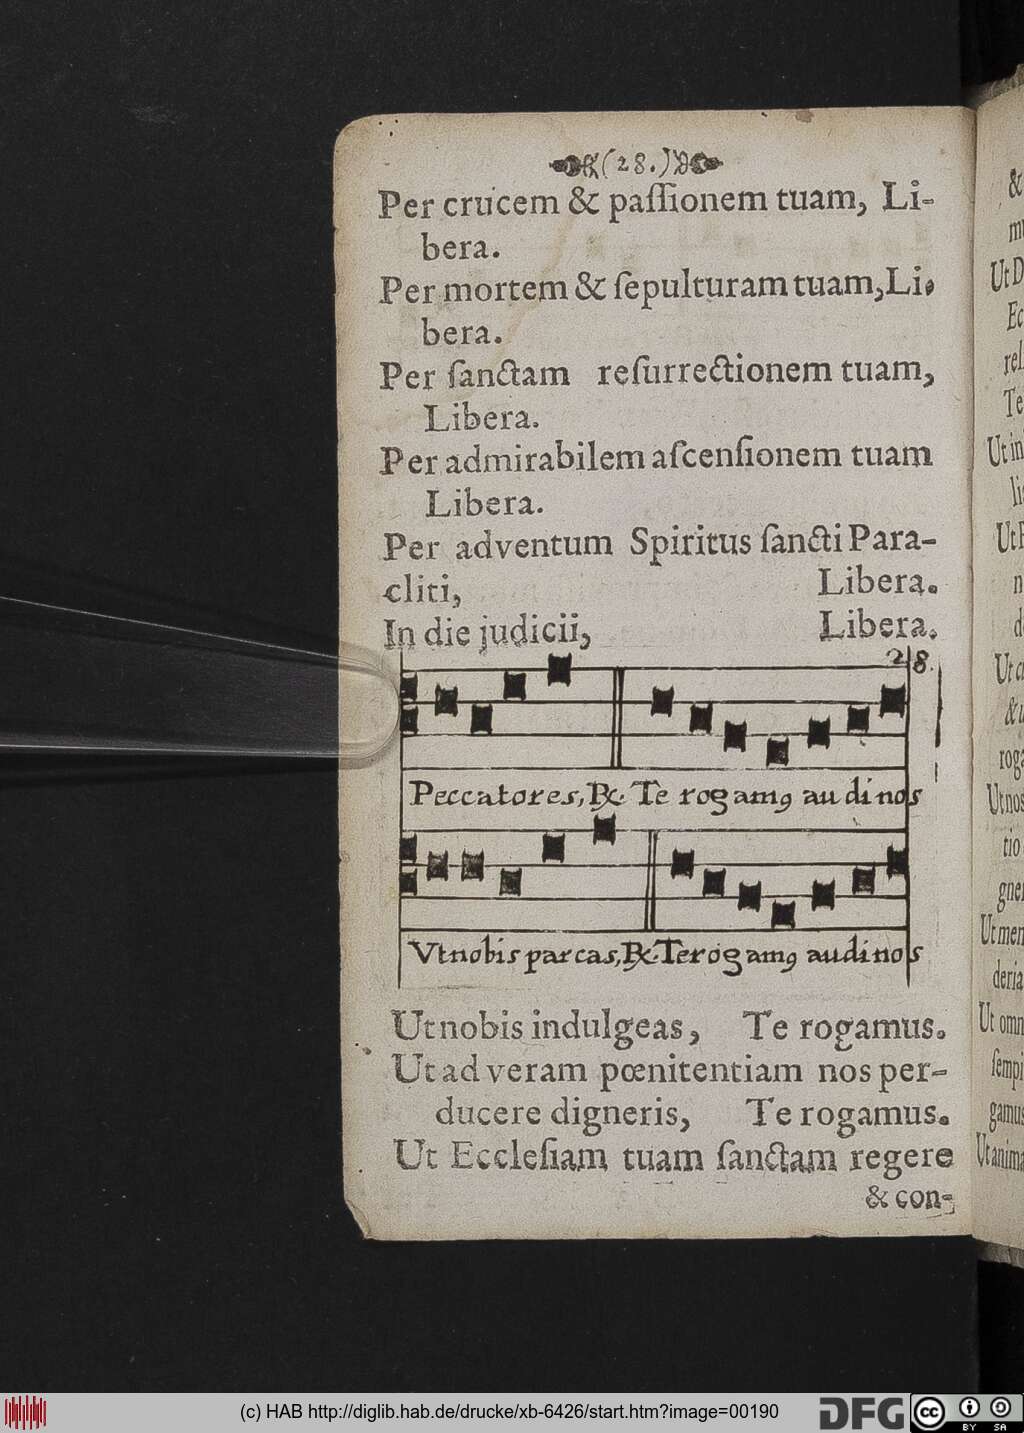 (28.)
Per crucem & paſſionem tuam, Li-
bera.
Per mortem & ſepulturam tuam, Li-
bera.
Per ſanctam reſurrectionem tuam,
Libera.
Per admirabilem aſcenſionem tuam
Libera.
Per adventum Spiritus ſancti Para-
cliti, Libera.
In die judicii, Libera.
28.
Peccatores, ℟. Te rogamꝰ audi nos
Vt nobis parcas, ℟. Te rogamꝰ audi nos
Ut nobis indulgeas, Te rogamus.
Ut ad veram pœnitentiam nos per-
ducere digneris, Te rogamus.
Ut Eccleſiam tuam ſanctam regere
& con-
&
Ut
Ec
rel
Te
Ut in
Ut
Ut
rog
Ut nos
tio
gne
Ut men
deria
Ut omn
ſempi
gamus
Ut anima
(c) HAB http://diglib.hab.de/drucke/xb-6426/start.htm?image=00190
DFG
cc
BY SA